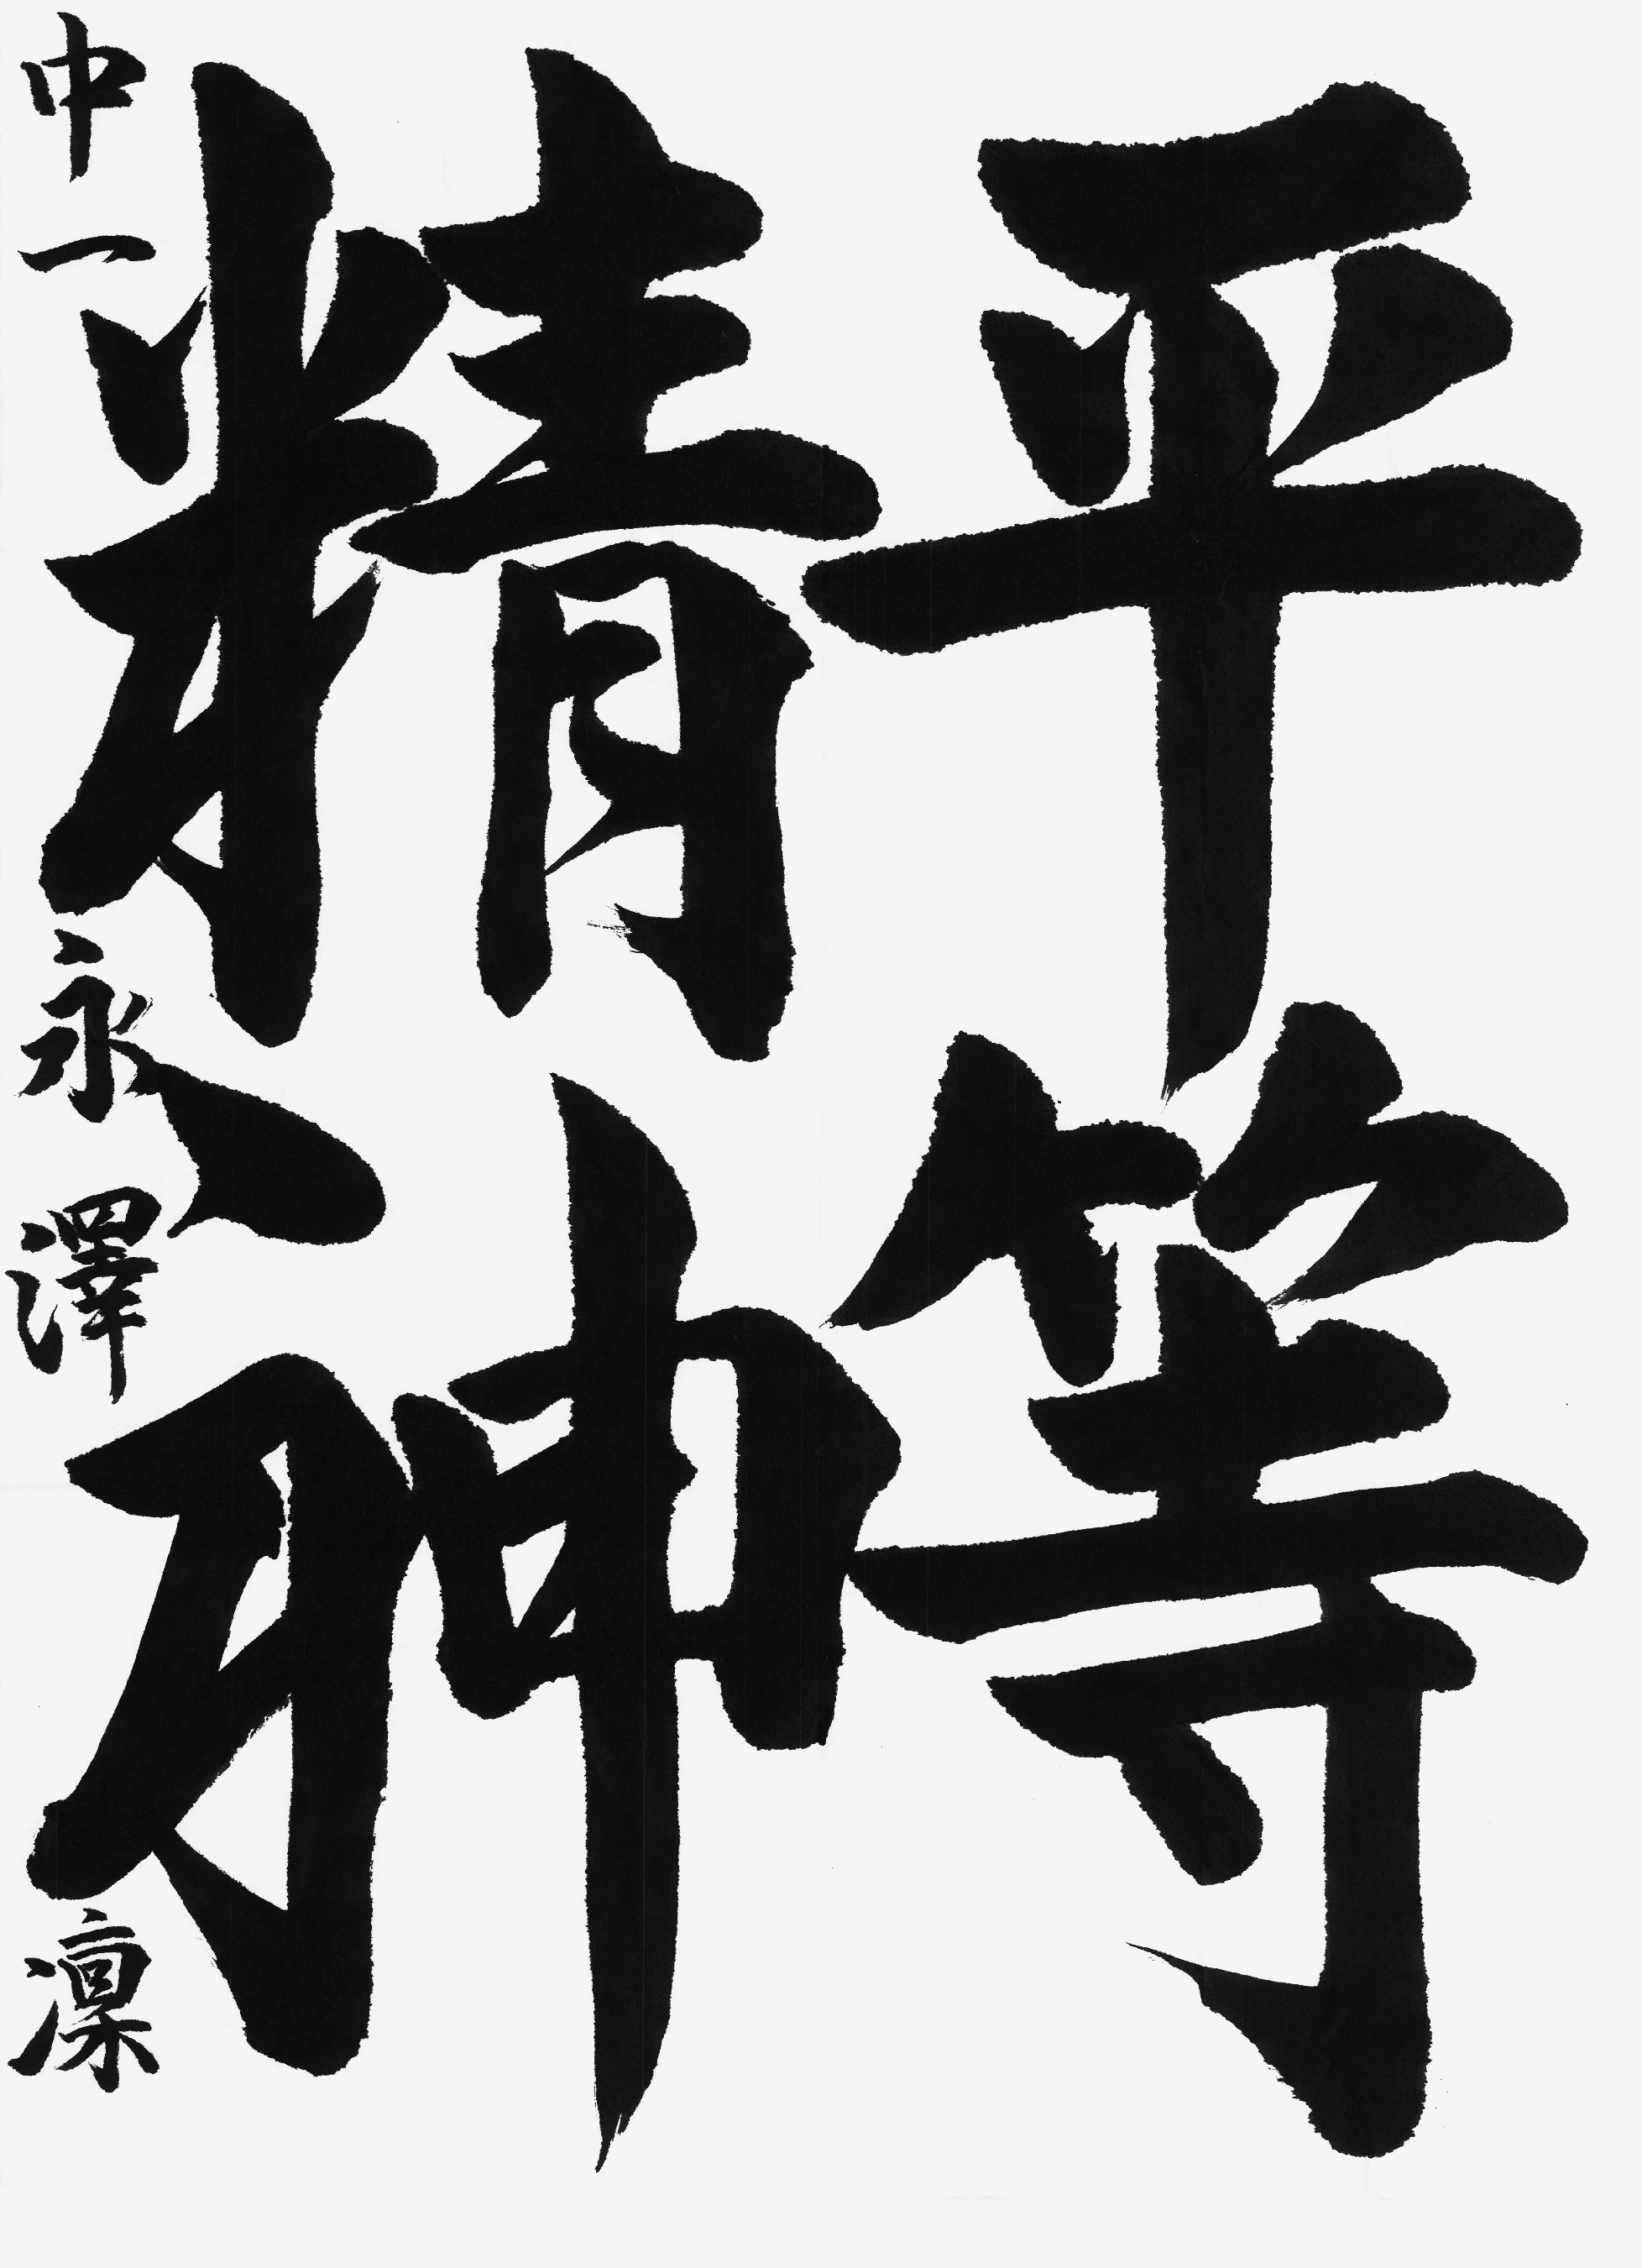 平等
精神
中一 永澤凛